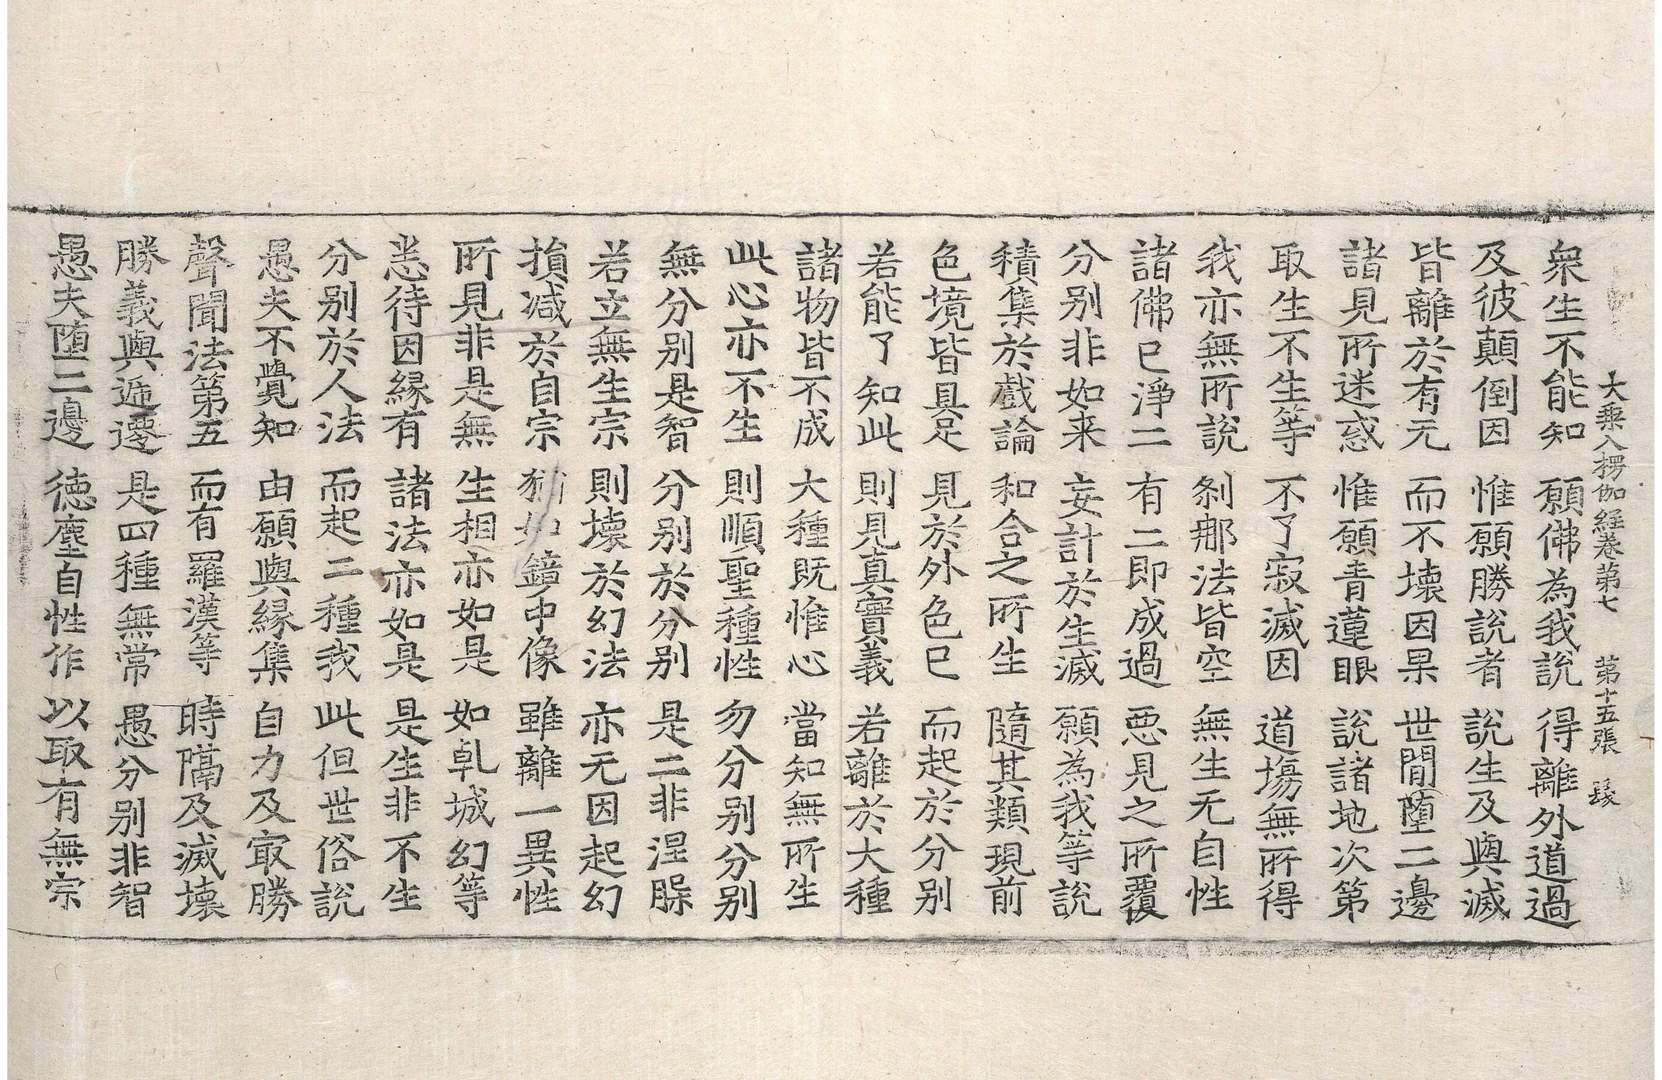 大乘入楞伽經卷第七 第十五張
衆生不能知 願佛為我說 得離外道過
及彼顛倒因 惟願勝說者 說生及與滅
皆離於有无 而不壞因果 世間墮二邊
諸見所迷惑 惟願青蓮眼 說諸地次第
取生不生等 不了寂滅因 道場無所得
我亦無所說 刹那法皆空 無生无自性
諸佛已淨二 有二即成過 惡見之所覆
分別非如来 妄計於生滅 願為我等說
積集於戲論 和合之所生 隨其類現前
色境皆具足 見於外色已 而起於分別
若能了知此 則見真實義 若離於大種
諸物皆不成 大種既惟心 當知無所生
此心亦不生 則順聖種性 勿分別分別
無分別是智 分別於分別 是二非涅槃
若立無生宗 則壞於幻法 亦无因起幻
損減於自宗 猶如鏡中像 雖離一異性
所見非是無 生相亦如是 如乹城幻等
悉待因緣有 諸法亦如是 是生非不生
分別於人法 而起二種我 此但世俗說
愚夫不覺知 由願與緣集 自力及㝡勝
聲聞法第五 而有羅漢等 時隔及滅壞
勝義與遞遷 是四種無常 愚分別非智
愚夫墮二邊 徳塵自性作 以取有無宗